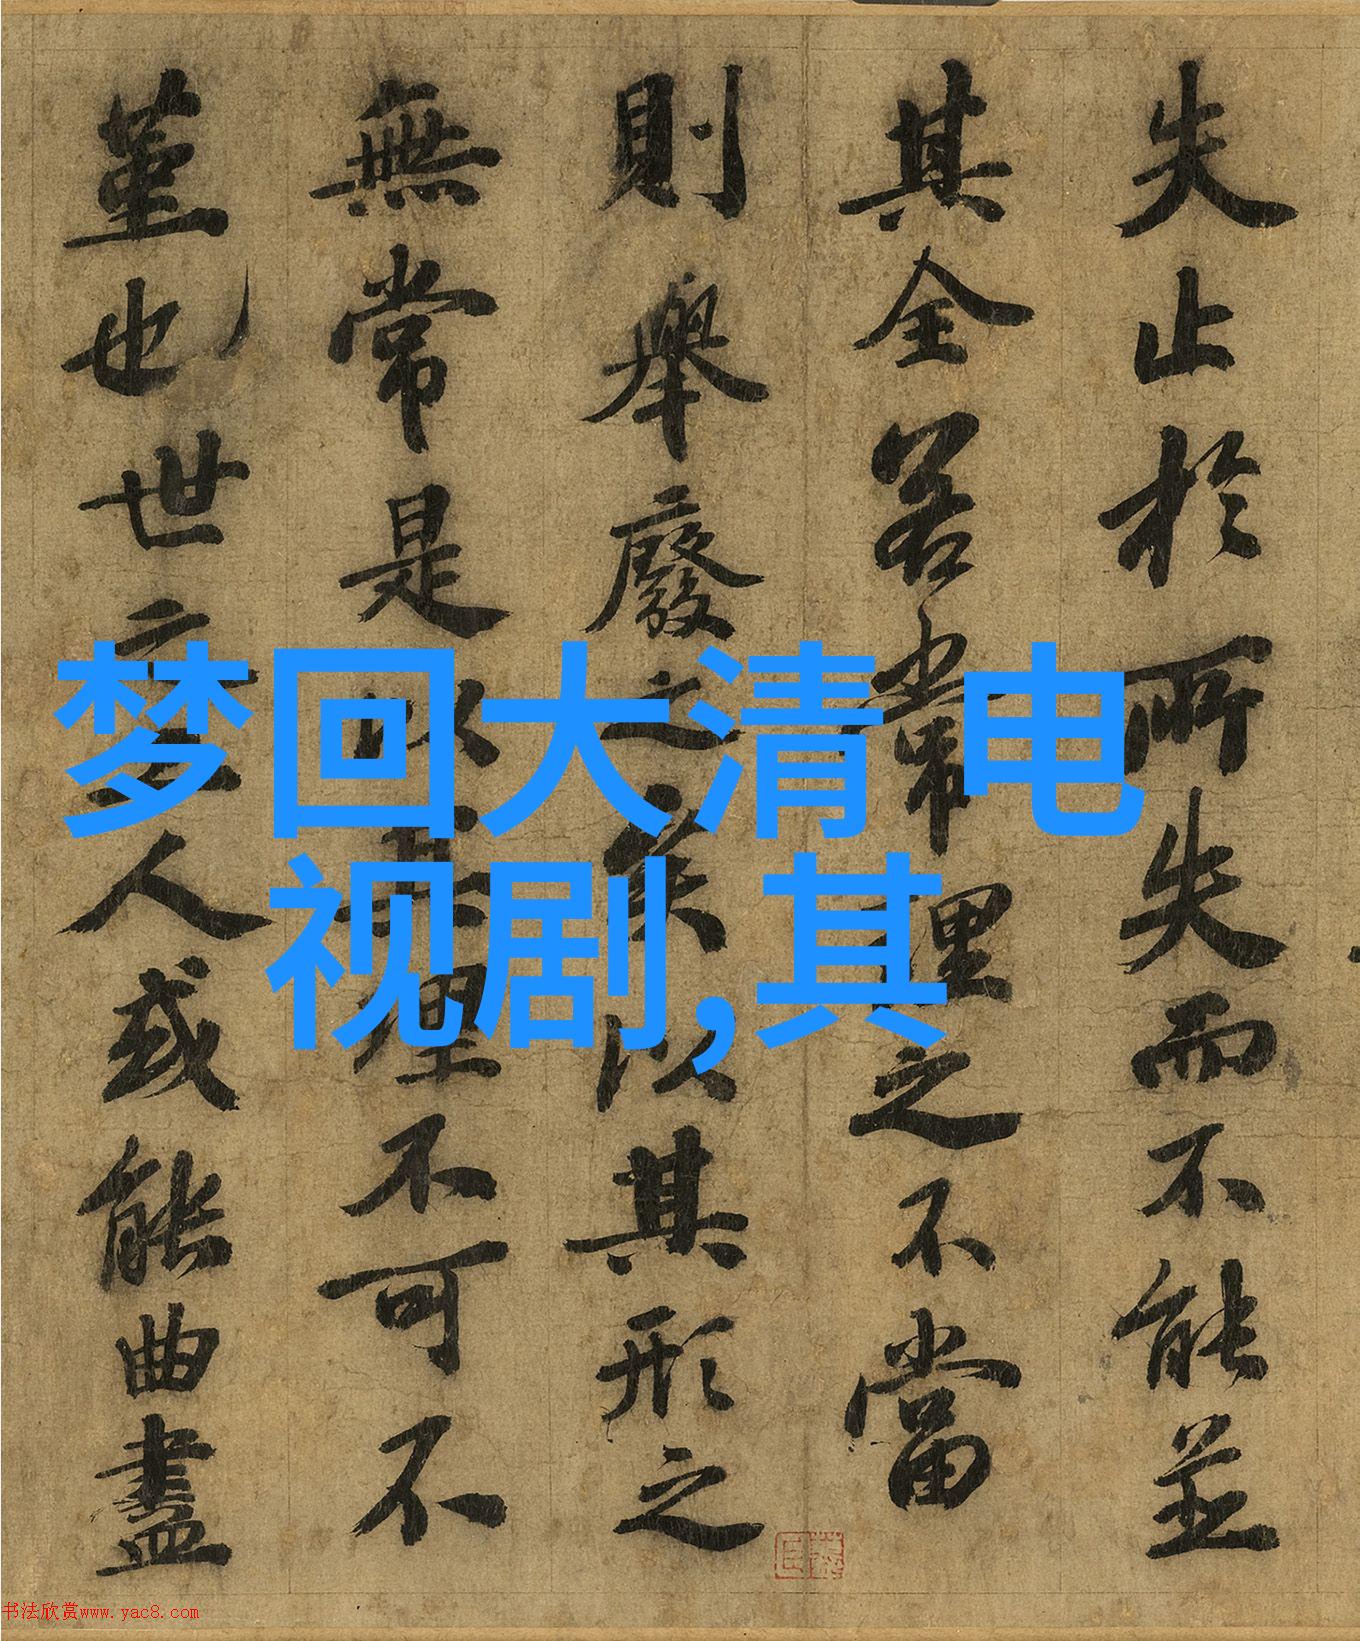 失止於所失而不能並
其全若常理之不當
則舉廢之矣以其形之
無常是以其理不可不
堇也世之工人或能曲盡
梦回大清 电
视剧,其
书法欣赏www.yac8.com